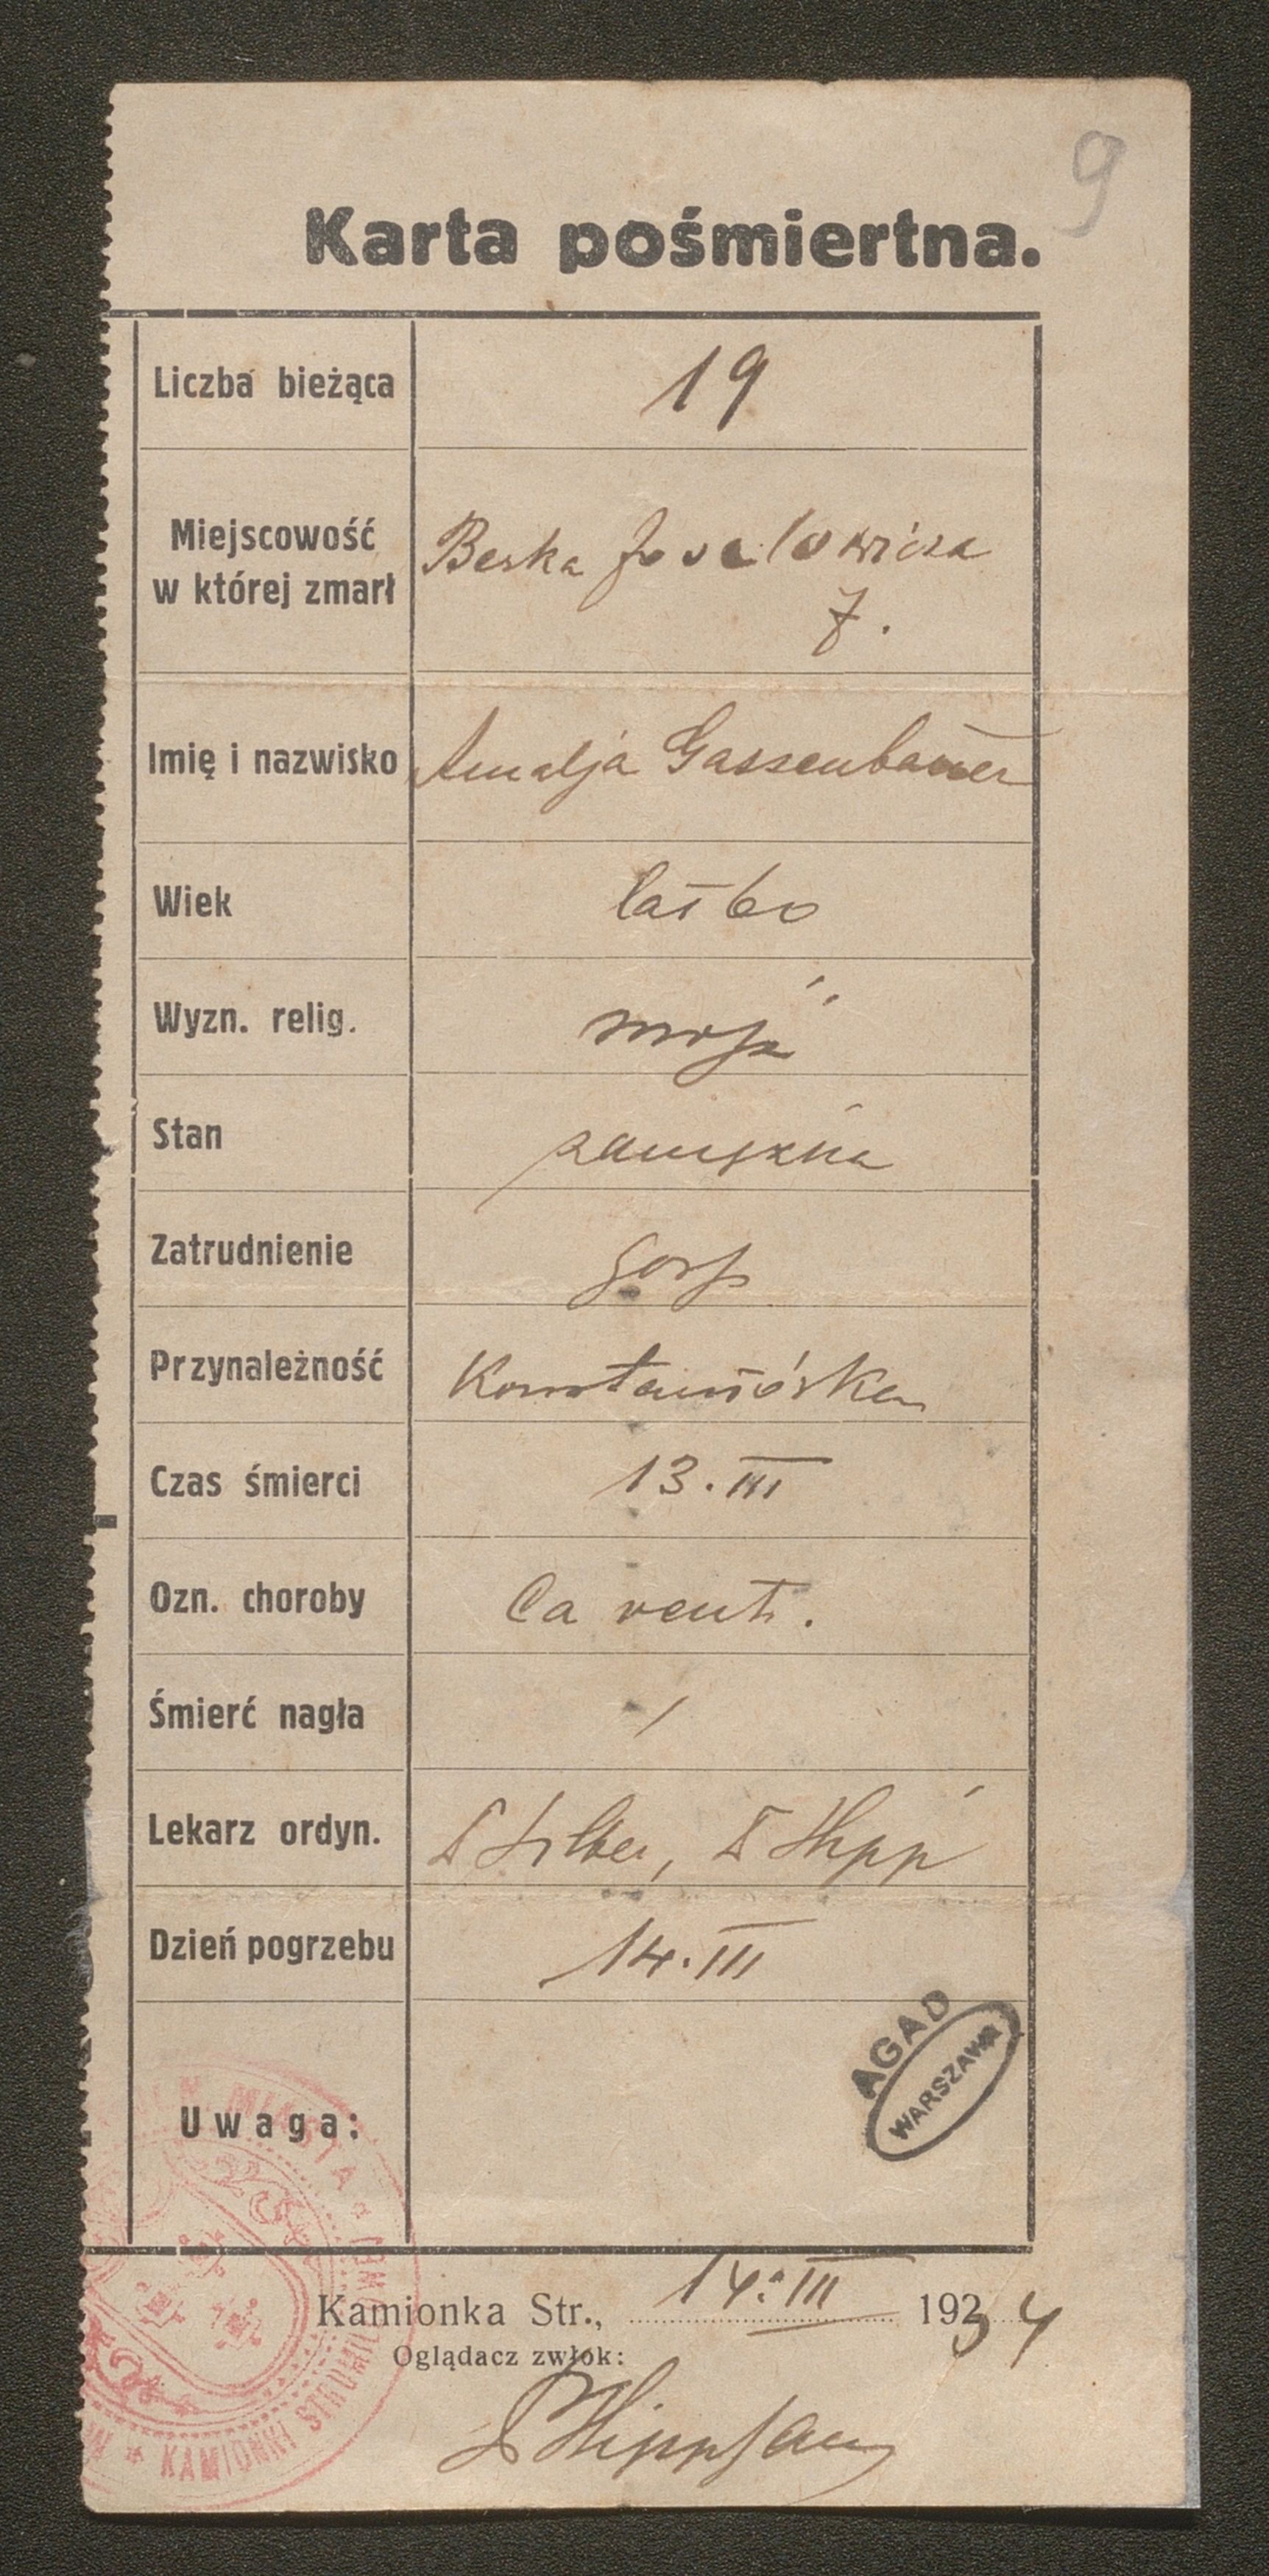 9
Karta pośmiertna.
Liczba bieżąca 19
Miejscowość
w której zmarł Berka Joselowicza
7.
Imię i nazwisko Amalja Gassenbauer
Wiek lat 60
Wyzn. relig. mojż
Stan zamężna
Zatrudnienie gosp
Przynależność Konstantówka
Czas śmierci 13. III
Ozn. choroby Ca ventr.
Śmierć nagła /
Lekarz ordyn. D Silber, D
Dzień pogrzebu 14. III
AGAD
WARSZAWA
Uwaga:
MIASTA * KAMIONKI STRUMIŁOWEJ *
Kamionka Str., 14. III 1934
Oglądacz zwłok: